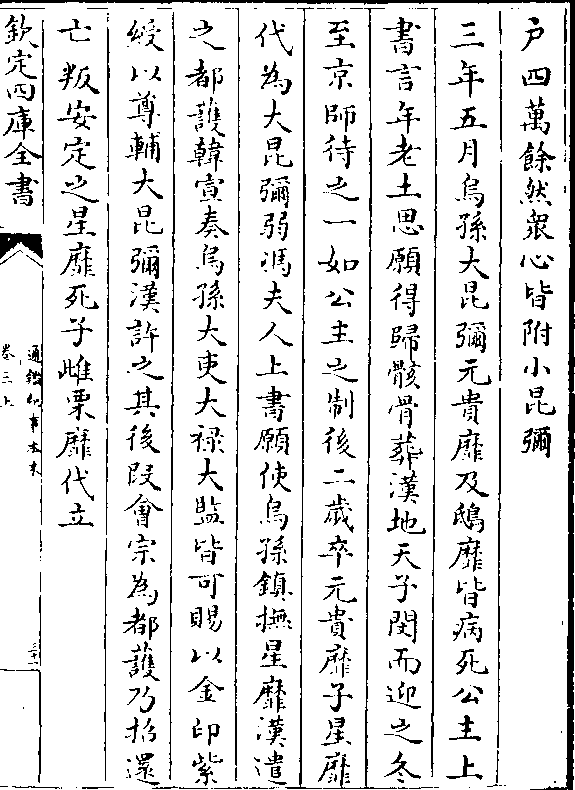 户四萬餘然衆心皆附小昆彌
三年五月烏孫大昆彌元貴靡及鴟靡皆病死公主上
書言年老土思願得歸骸骨葬漢地天子閔而迎之冬
至京師待之一如公主之制後二歲卒元貴靡子星靡
代為大昆彌弱馮夫人上書願使烏孫鎮撫星靡漢遣
之都護韓宣奏烏孫大吏大禄大監皆可賜以金印紫
綬以尊輔大昆彌漢許之其後段會宗為都護乃招還
亡叛安定之星靡死子雌栗靡代立
欽定四庫全書
通鑑紀事本末
卷三上